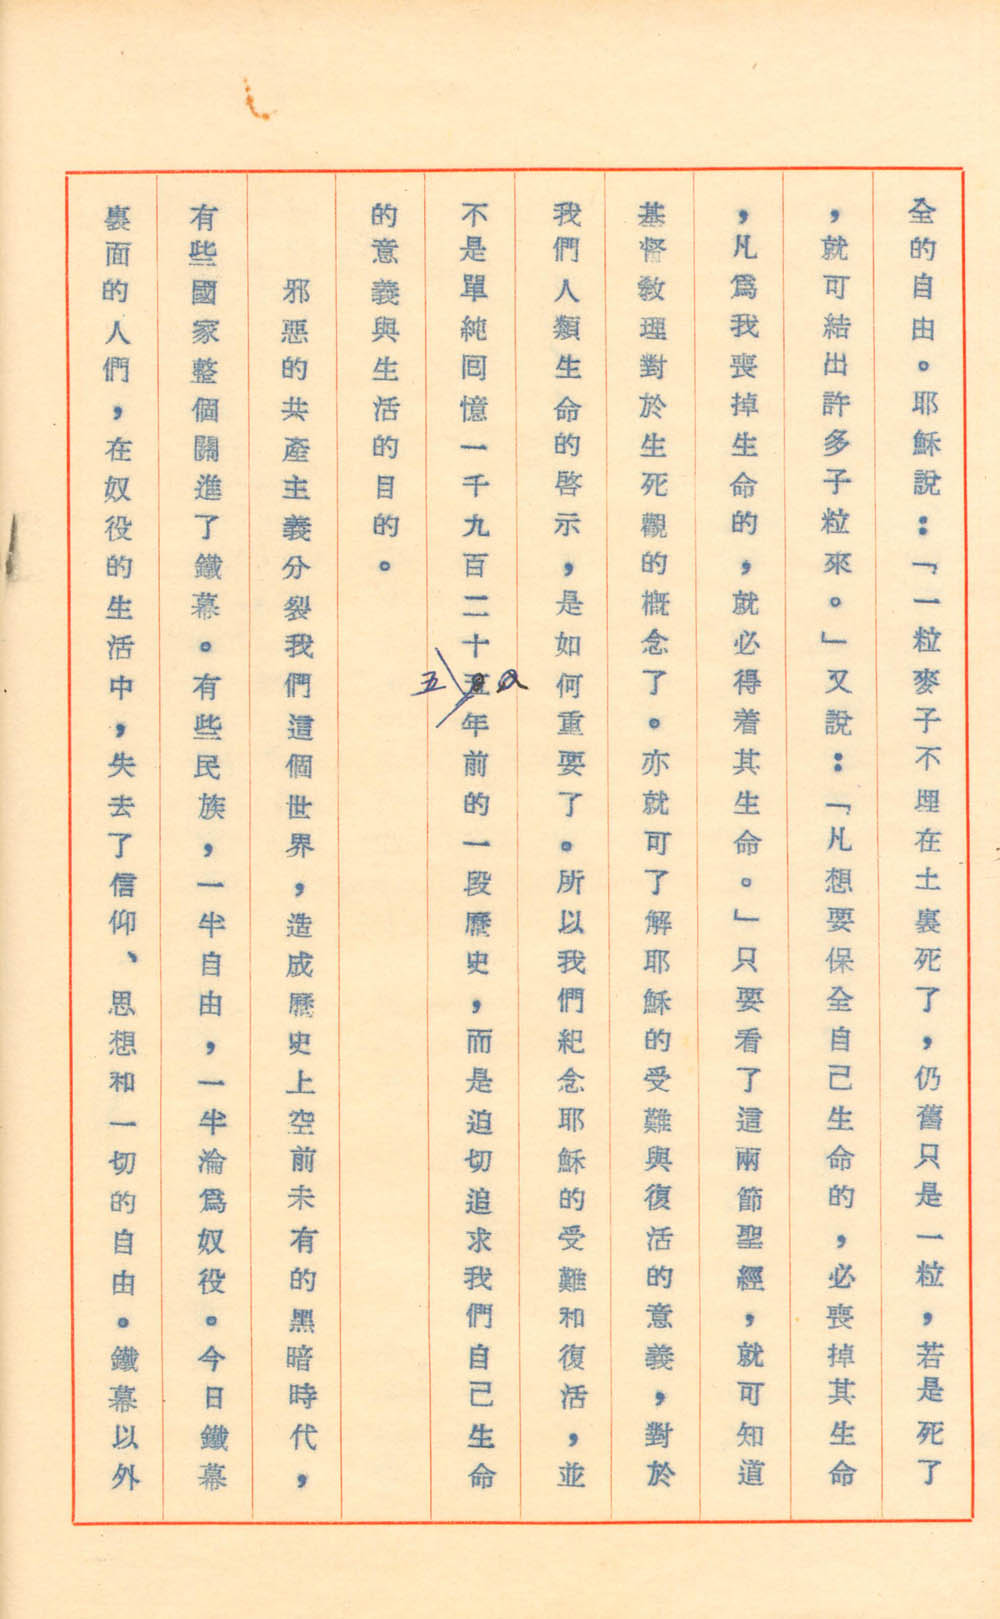 全的自由。耶穌說：「一粒麥子不埋在土裏死了，仍舊只是一粒，若是死了
，就可結出許多子粒來。」又說：「凡想要保全自己生命的，必喪掉其生命
，凡爲我喪掉生命的，就必得着其生命。」只要看了這兩節聖經，就可知道
基督敎理對於生死觀的槪念了。亦就可了解耶穌的受難與復活的意義，對於
我們人類生命的啓示，是如何重要了。所以我們紀念耶穌的受難和復活，並
不是單純囘憶一千九百二十五年前的一段歷史，而是迫切追求我們自己生命
五
的意義與生活的目的。
邪惡的共產主義分裂我們這個世界，造成歷史上空前未有的黑暗時代，
有些國家整個關進了鐵幕。有些民族，一半自由，一半淪爲奴役。今日鐵幕
裏面的人們，在奴役的生活中，失去了信仰、思想和一切的自由。鐵幕以外